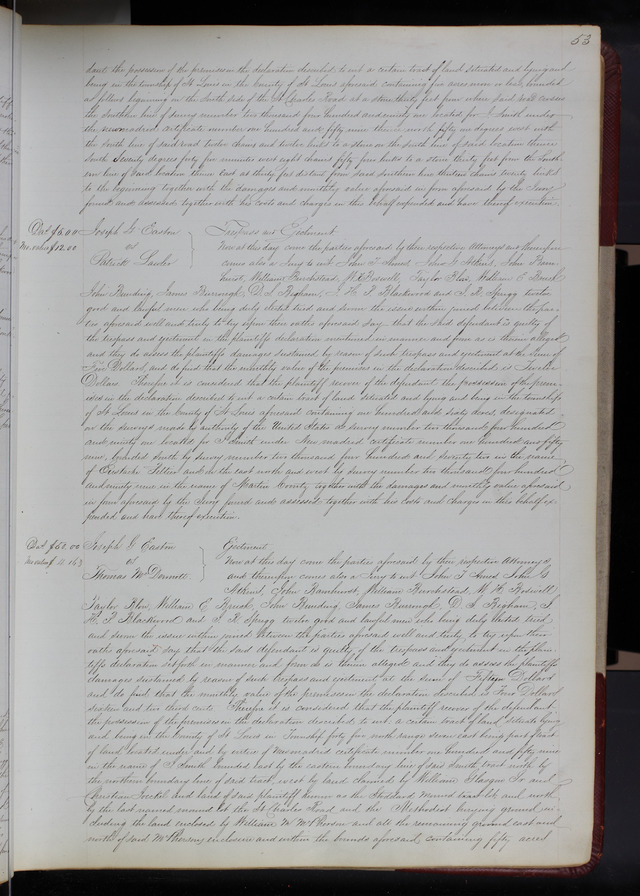 53
dant the possession of the premises in the declaration described to wit a certain tract of land situated and lying and
being in the township of St Louis in the County of St Louis aforesaid containing five acres more or less, bounded
as follows beginning on the South side of the St Charles Road at a stone thirty feet from where said road crosses
the southern line of survey number two thousand four hundred and ninety one located for J Smith under
the new madrid certificate number one hundred and fifty nine thence north fifty six degrees west with
the South line of said road twelve chains and twelve links to a stone on the south line of said location thence
South Seventy degrees forty five minutes west eight chains fifty four links to a stone thirty feet from the South
ern line of said location thence East at thirty feet distant from said southern line thirteen chains twenty links
to the beginning together with the damages and monthly value aforesaid in form aforesaid by the Jury
found and assessed together with his costs and charges in this behalf expended and have thereof execution.
Dam. $5.00 Joseph G Easton Trespass and Ejectment
Mo. value $12.00 vs Now at this day come the parties aforesaid by their respective Attorneys and thereupon
Patrick Lawler comes also a Jury to wit John T Ames John G Atkins, John Barn
hurst, William Burchstead, M H Boswell, Taylor Blow, William E Breed
John Bunding, James Burrough, D. L Bigham, J. H. P. Blackwood and J. R. Spragg twelve
good and lawful men who being duly elected tried and sworn the issue within joined between the par-
ties aforesaid well and truly to try upon their oaths aforesaid say that the said defendant is guilty of
the trespass and ejectment in the plaintiffs declaration mentioned in manner and form as is therein alleged
and they do assess the plaintiffs damages sustained by reason of such trespass and ejectment at the sum of
Five Dollars, and do find that the monthly value of the premises in the declaration described is Twelve
Dollars. Therefore it is considered that the plaintiff recover of the defendant the possession of the prem-
ises in the declaration described to wit a certain tract of land situated and lying and being in the township
of St Louis in the County of St Louis aforesaid containing one hundred and sixty acres designated
on the surveys made by authority of the United States as survey number two thousand four hundred
and ninety one located for J Smith under New madrid certificate number one hundred and fifty
nine, bounded South by survey number two thousand four hundred and seventy two in the name
of and on the east north and west by survey number two thousand four hundred
and ninety nine in the name of Martin together with the damages and monthly value aforesaid
in form aforesaid by the Jury found and assessed together with his costs and charges in this behalf ex
pended and have thereof execution.
Dam $50.00 Joseph G Easton Ejectment
vs Now at this day come the parties aforesaid by their respective Attorneys
Thomas McDermott and thereupon comes also a Jury to wit John T Ames John G
Atkins, John Barnhurst, William Burchstead, M. H. Boswell
Taylor Blow, William E Breed, John Bunding, James Burrough, D. L Bigham, J.
H. P. Blackwood and J. R. Spragg twelve good and lawful men who being duly elected tried
and sworn the issue within joined between the parties aforesaid well and truly to try upon their
oaths aforesaid say that the said defendant is guilty of the trespass and ejectment in the plain
tiffs declaration set forth in manner and form as is therein alleged and they do assess the plaintiffs
damages sustained by reason of such trespass and ejectment at the sum of Dollars
and do find that the monthly value of the premises in the declaration described is Dollars
sixteen and two third cents. Therefore it is considered that the plaintiff recover of the defendant
the possession of the premises in the declaration described to wit a certain tract of land situate lying
and being in the County of St Louis in Township forty five north range seven east being part
of land located under and by virtue of New madrid certificate number one hundred and fifty nine
in the name of J Smith bounded east by the eastern boundary line of said Smith tract north by
the northern boundary line of said tract, west by land claimed by William Glasgow Jr and
Christian and land of said plaintiff known as the Stoddard mound tract and north
by the last named mound the St Charles Road and the Methodist burying ground in
cluding the land enclosed by William M McPherson and all the remaining ground east and
north of said McPhersons enclosure and within the bounds aforesaid, containing fifty acres